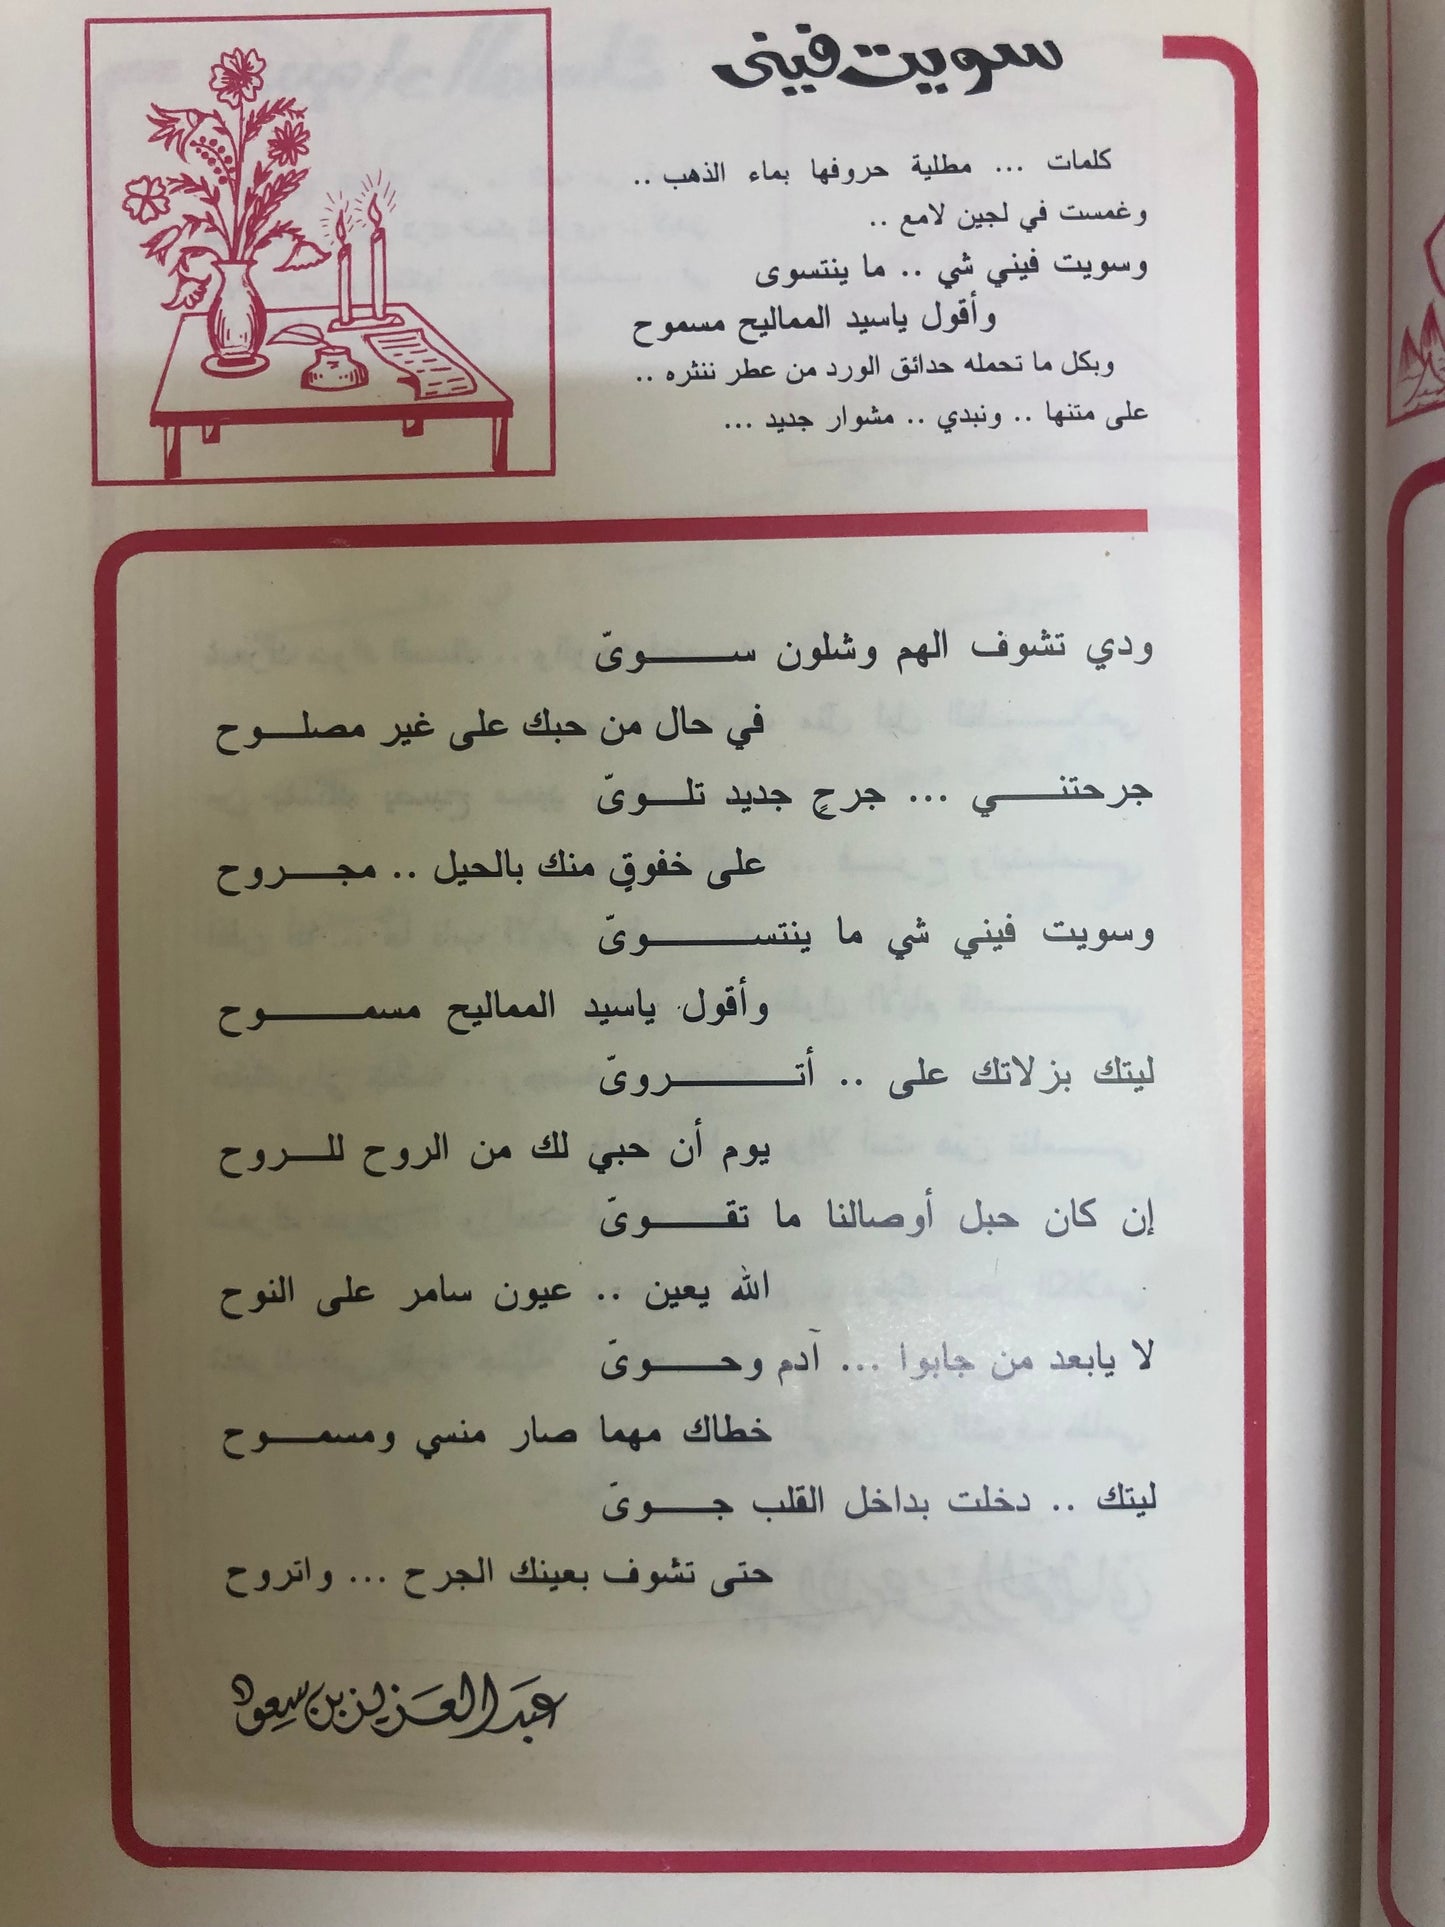 سويت فيني
كلمات ... مطلية حروفها بماء الذهب ..
وغمست في لجين لامع ..
وسويت فيني شي .. ما ينتسوى
وأقول ياسيد المماليح مسموح
وبكل ما تحمله حدائق الورد من عطر ننثره ..
على متنها .. ونبدي .. مشوار جديد ...
ودي تشوف الهم وشلون ســـــوىّ
في حال من حبك على غير مصلـــوح
جرحتنـــــي ... جرحٍ جديد تلـــوىّ
على خفوقٍ منك بالحيل .. مجـــروح
وسويت فيني شي ما ينتســـــــوىّ
وأقول ياسيد المماليح مسمـــــــوح
ليتك بزلاتك على .. أتـــــــــروىّ
يوم أن حبي لك من الروح للـــروح
إن كان حبل أوصالنا ما تقـــــوىّ
الله يعين .. عيون سامر على النوح
لا يابعد من جابوا ... آدم وحـــــوىّ
خطاك مهما صار منسي ومسمـــوح
ليتك .. دخلت بداخل القلب جـــــوىّ
حتى تشوف بعينك الجرح ... واتروح
عبدالعزيز بن سعود